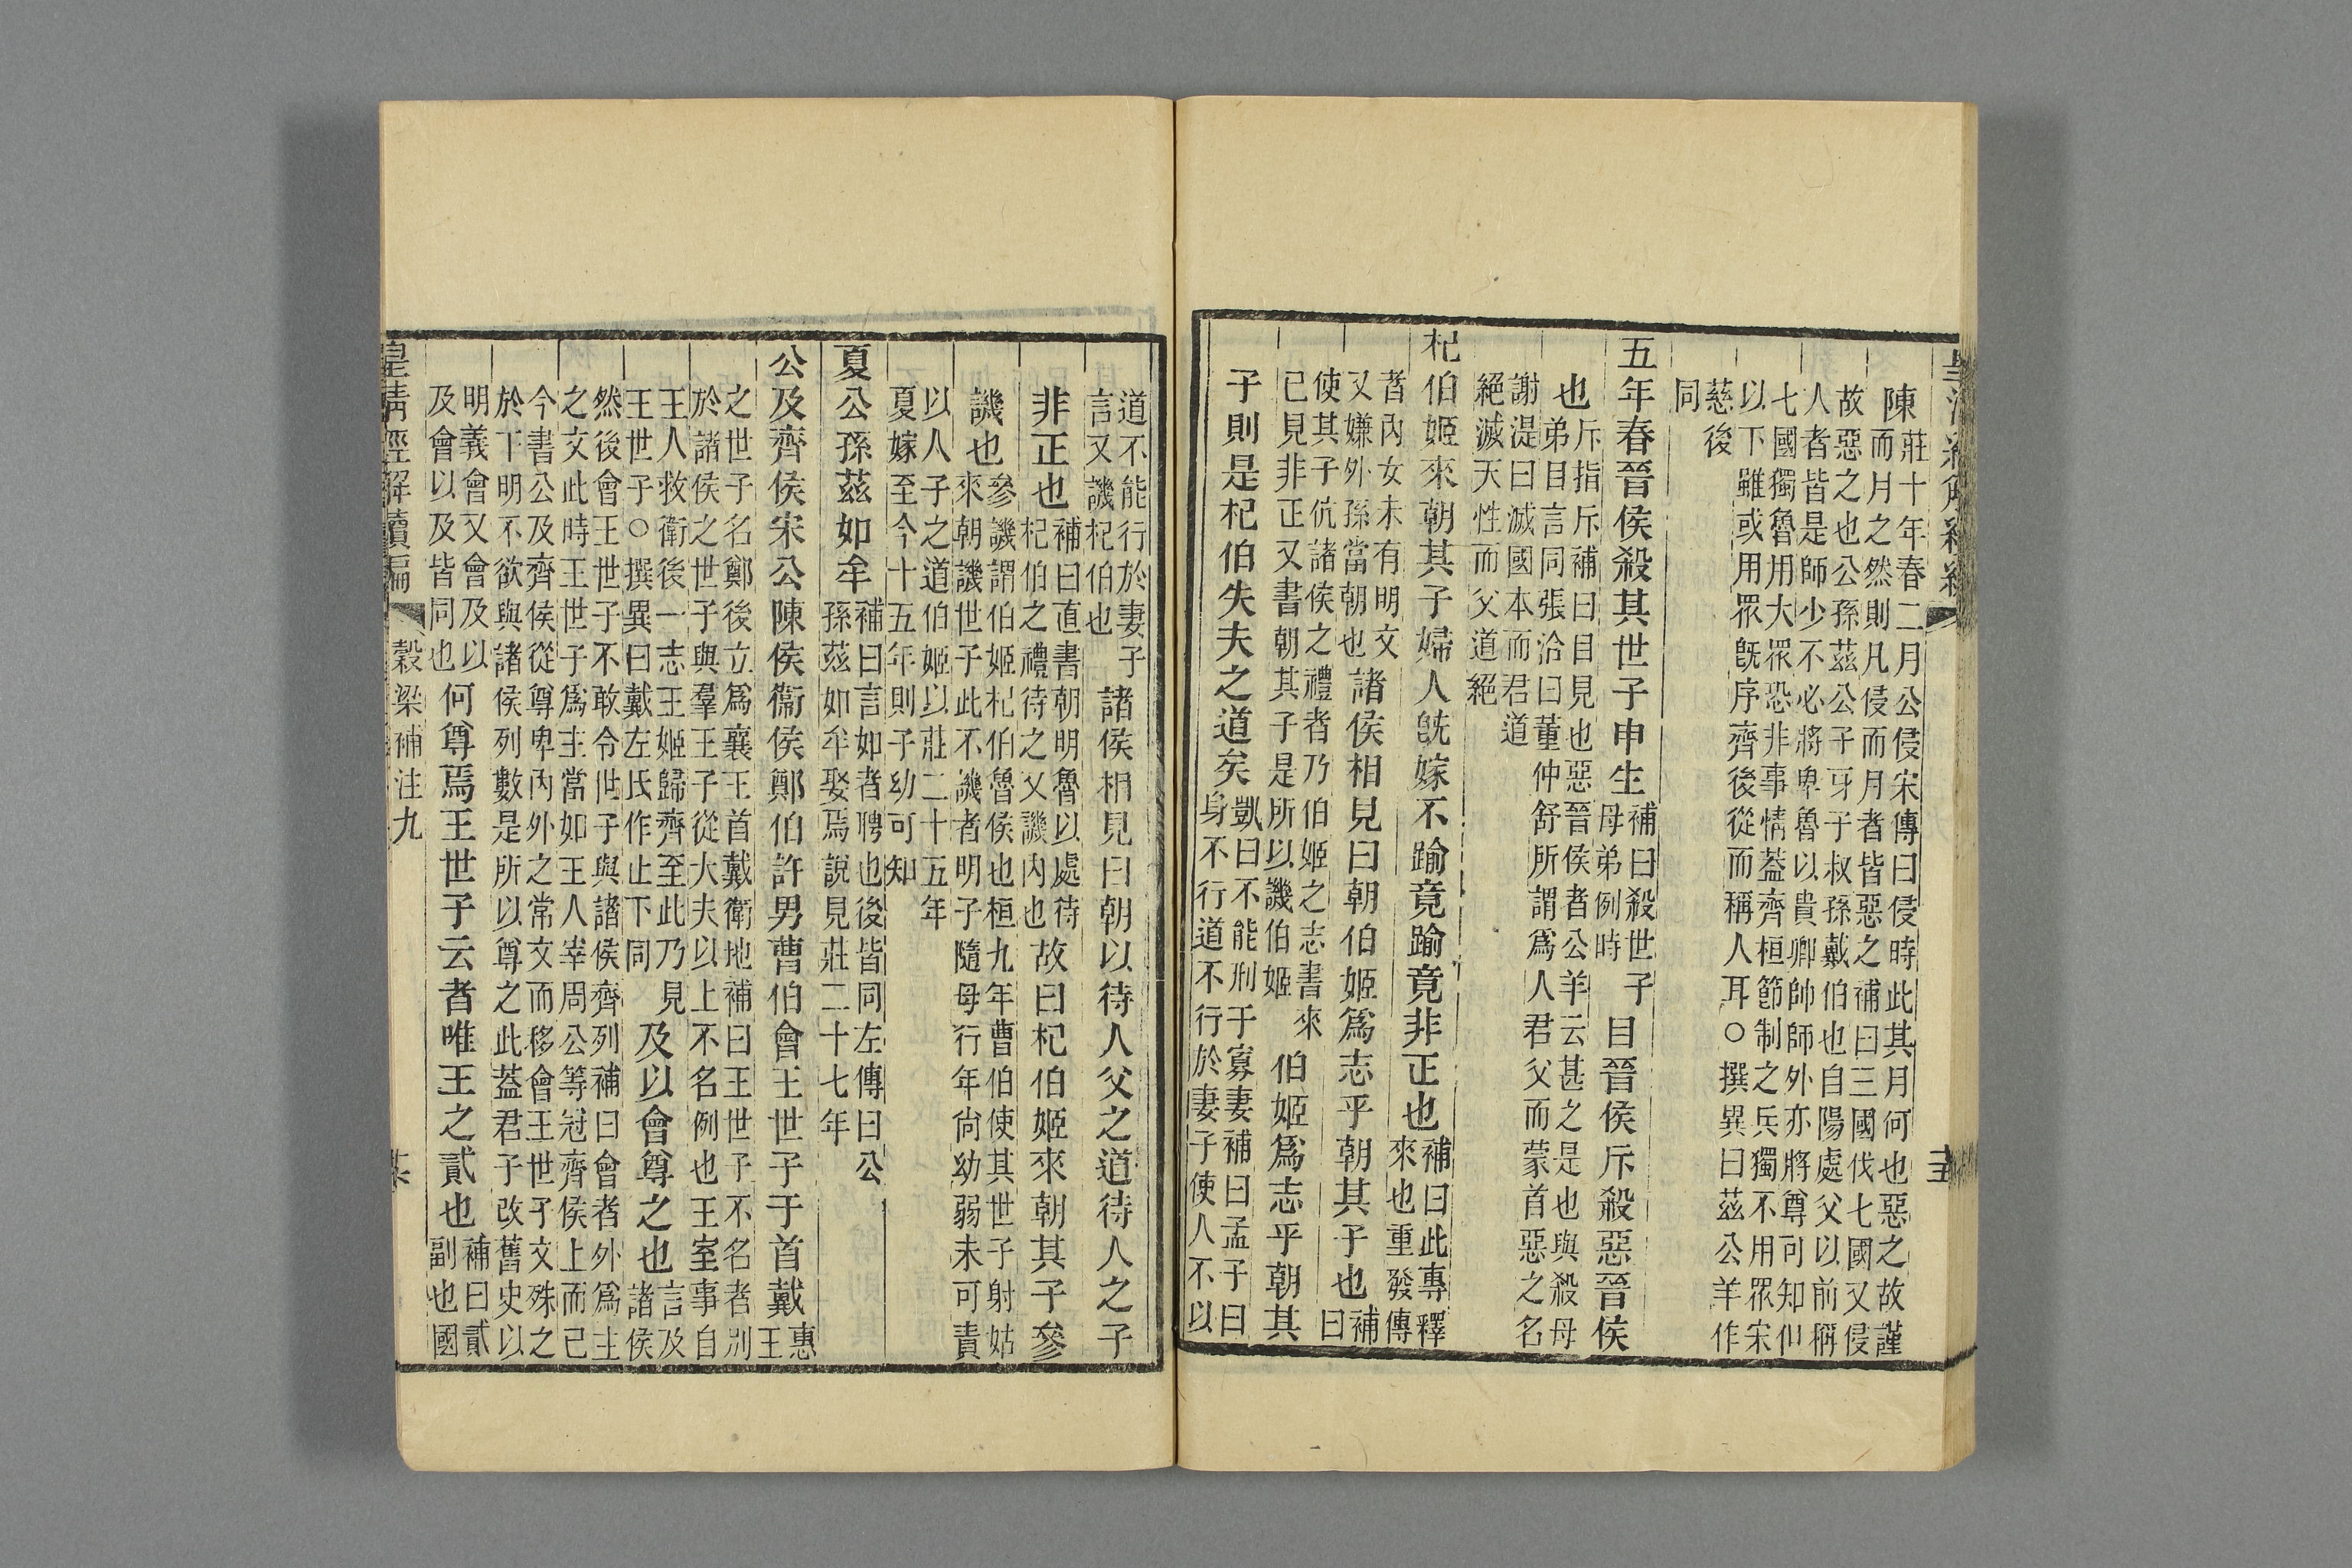 陳莊十年春二月公侵宋傳曰侵時此其月何也惡之故謹
而月之然則凡侵而月者皆惡之補曰三國伐七國又侵
故惡之也公孫茲公子牙子叔孫戴伯也自陽處父以前稱
人者皆是師少不必將卑魯以貴卿帥師外亦將尊可知但
七國獨魯用大眾恐非事情葢齊桓節制之兵獨不用眾宋
以下雖或用眾旣序齊後從而稱人耳○撰異曰茲公羊作
慈後
同
五年春晉侯殺其世子申生補曰殺世子
母弟例時目晉侯斥殺惡晉侯
也斥指斥補曰目見也惡晉侯者公羊云甚之是也與殺母
弟目言同張洽曰董仲舒所謂爲人君父而蒙首惡之名
謝湜曰滅國本而君道
絕滅天性而父道絕
杞伯姬來朝其子婦人旣嫁不踰竟踰竟非正也補曰此專釋
來也重發傳
者內女未有明文
又嫌外孫當朝也諸侯相見曰朝伯姬爲志乎朝其子也補
曰
使其子伉諸侯之禮者乃伯姬之志書來
已見非正又書朝其子是所以譏伯姬伯姬爲志乎朝其
子則是杞伯失夫之道矣凱曰不能刑于寡妻補曰孟子曰
身不行道不行於妻子使人不以
道不能行於妻子
言又譏杞伯也諸侯相見曰朝以待人父之道待人之子
非正也補曰直書朝明魯以處待
杞伯之禮待之又譏內也故曰杞伯姬來朝其子參
譏也參譏謂伯姬杞伯魯侯也桓九年曹伯使其世子射姑
來朝譏世子此不譏者明子隨母行年尙幼弱未可責
以人子之道伯姬以莊二十五年
夏嫁至今十五年則子幼可知
夏公孫茲如牟補曰言如者聘也後皆同左傳曰公
孫茲如牟娶焉說見莊二十七年
公及齊侯宋公陳侯衞侯鄭伯許男曹伯會王世子于首戴惠
王
之世子名鄭後立爲襄王首戴衛地補曰王世子不名者別
於諸侯之世子與羣王子從大夫以上不名例也王室事自
王人救衛後一志王姬歸齊至此乃見
王世子○撰異曰戴左氏作止下同及以會尊之也言及
諸侯
然後會王世子不敢令世子與諸侯齊列補曰會者外爲主
之文此時王世子爲主當如王人宰周公等冠齊侯上而已
今書公及齊侯從尊卑內外之常文而移會王世子文殊之
於下明不欲與諸侯列數是所以尊之此葢君子改舊史以
明義會又會及以
及會以及皆同也何尊焉王世子云者唯王之貳也補曰貳
副也國
皇清經解續編 穀梁補注九